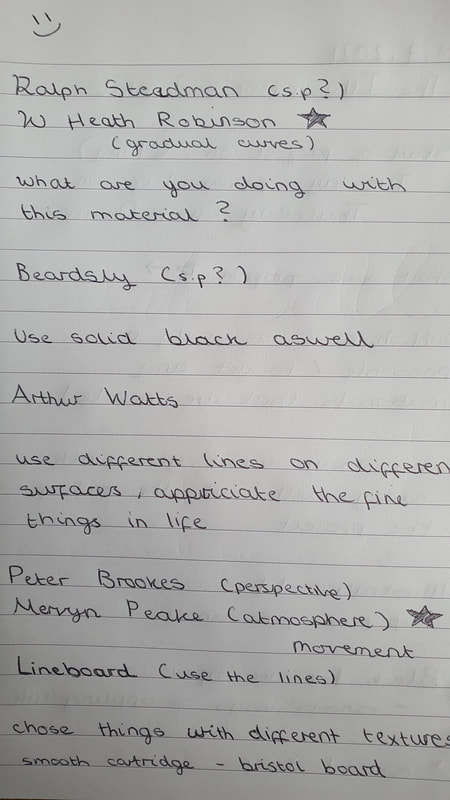 Ralph Steadman (s.p?)
W Heath Robinson
(gradual curves)
what are you doing with
this material ?
Beardsly (s.p?)
Use solid black aswell
Arthur Watts
use different lines on differen
surfaces, appriciate the fine
things in life
Peter Brookes (perspective)
Mervyn Peake (atmosphere)
movement
Lineboard (use the lines)
chose things with different textures
smooth catridge - bristol board